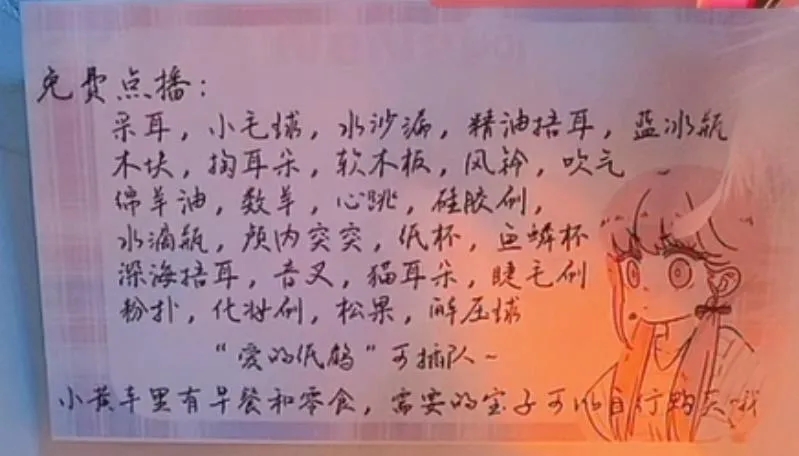 免费点播：
采耳，小毛球，水沙漏，精油捂耳，蓝冰瓶
木块，掏耳朵，软木板，风铃，吹气
绵羊油，数羊，心跳，硅胶刷，
水滴瓶，颅内突突，纸杯，鱼鳞杯
深海捂耳，音叉，猫耳朵，睫毛刷
粉扑，化妆刷，松果，解压球
“爱的纸鹤”可插队~
小黄车里有早餐和零食，需要的宝子可以自行购买